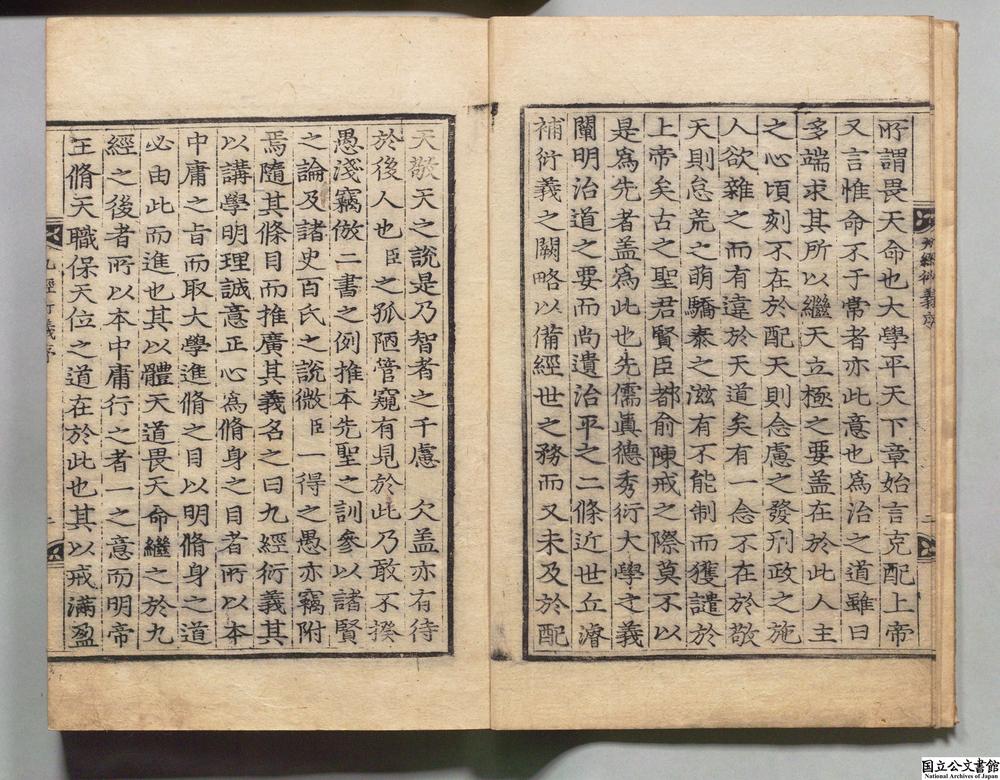 所謂畏天命也大學平天下章始言克配上帝
又言惟命不于常者亦此意也爲治之道雖曰
多端求其所以繼天立極之要盖在於此人主
之心頃刻不在於配天則念慮之發刑政之施
人欲雜之而有違於天道矣有一念不在於敬
天則怠荒之萌驕泰之滋有不能制而獲譴於
上帝矣古之聖君賢臣都俞陳戒之際莫不以
是爲先者盖爲此也先儒眞德秀衍大學之義
闡明治道之要而尚遺治平之二條近世丘濬
補衍義之闕略以備經世之務而又未及於配
九經衍義序
二
天敬天之說是乃智者之千慮 欠盖亦有待
於後人也臣之孤陋管窺有見於此乃敢不揆
愚淺竊倣二書之例推本先聖之訓參以諸賢
之論及諸史百氏之說微臣一得之愚亦竊附
焉隨其條目而推廣其義名之曰九經衍義其
以講學明理誠意正心爲脩身之目者所以本
中庸之旨而取大學進脩之目以明脩身之道
必由此而進也其以體天道畏天命繼之於九
經之後者所以本中庸行之者一之意而明帝
王脩天職保天位之道在於此也其以戒滿盈
九經衍義序
國立公文書館
National Archives of Japan